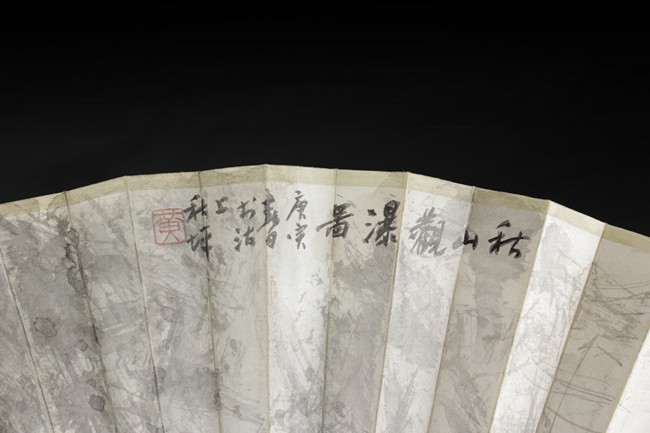 秋山觀瀑圖
庚寅
春日
於沽
上
秋坪
黄